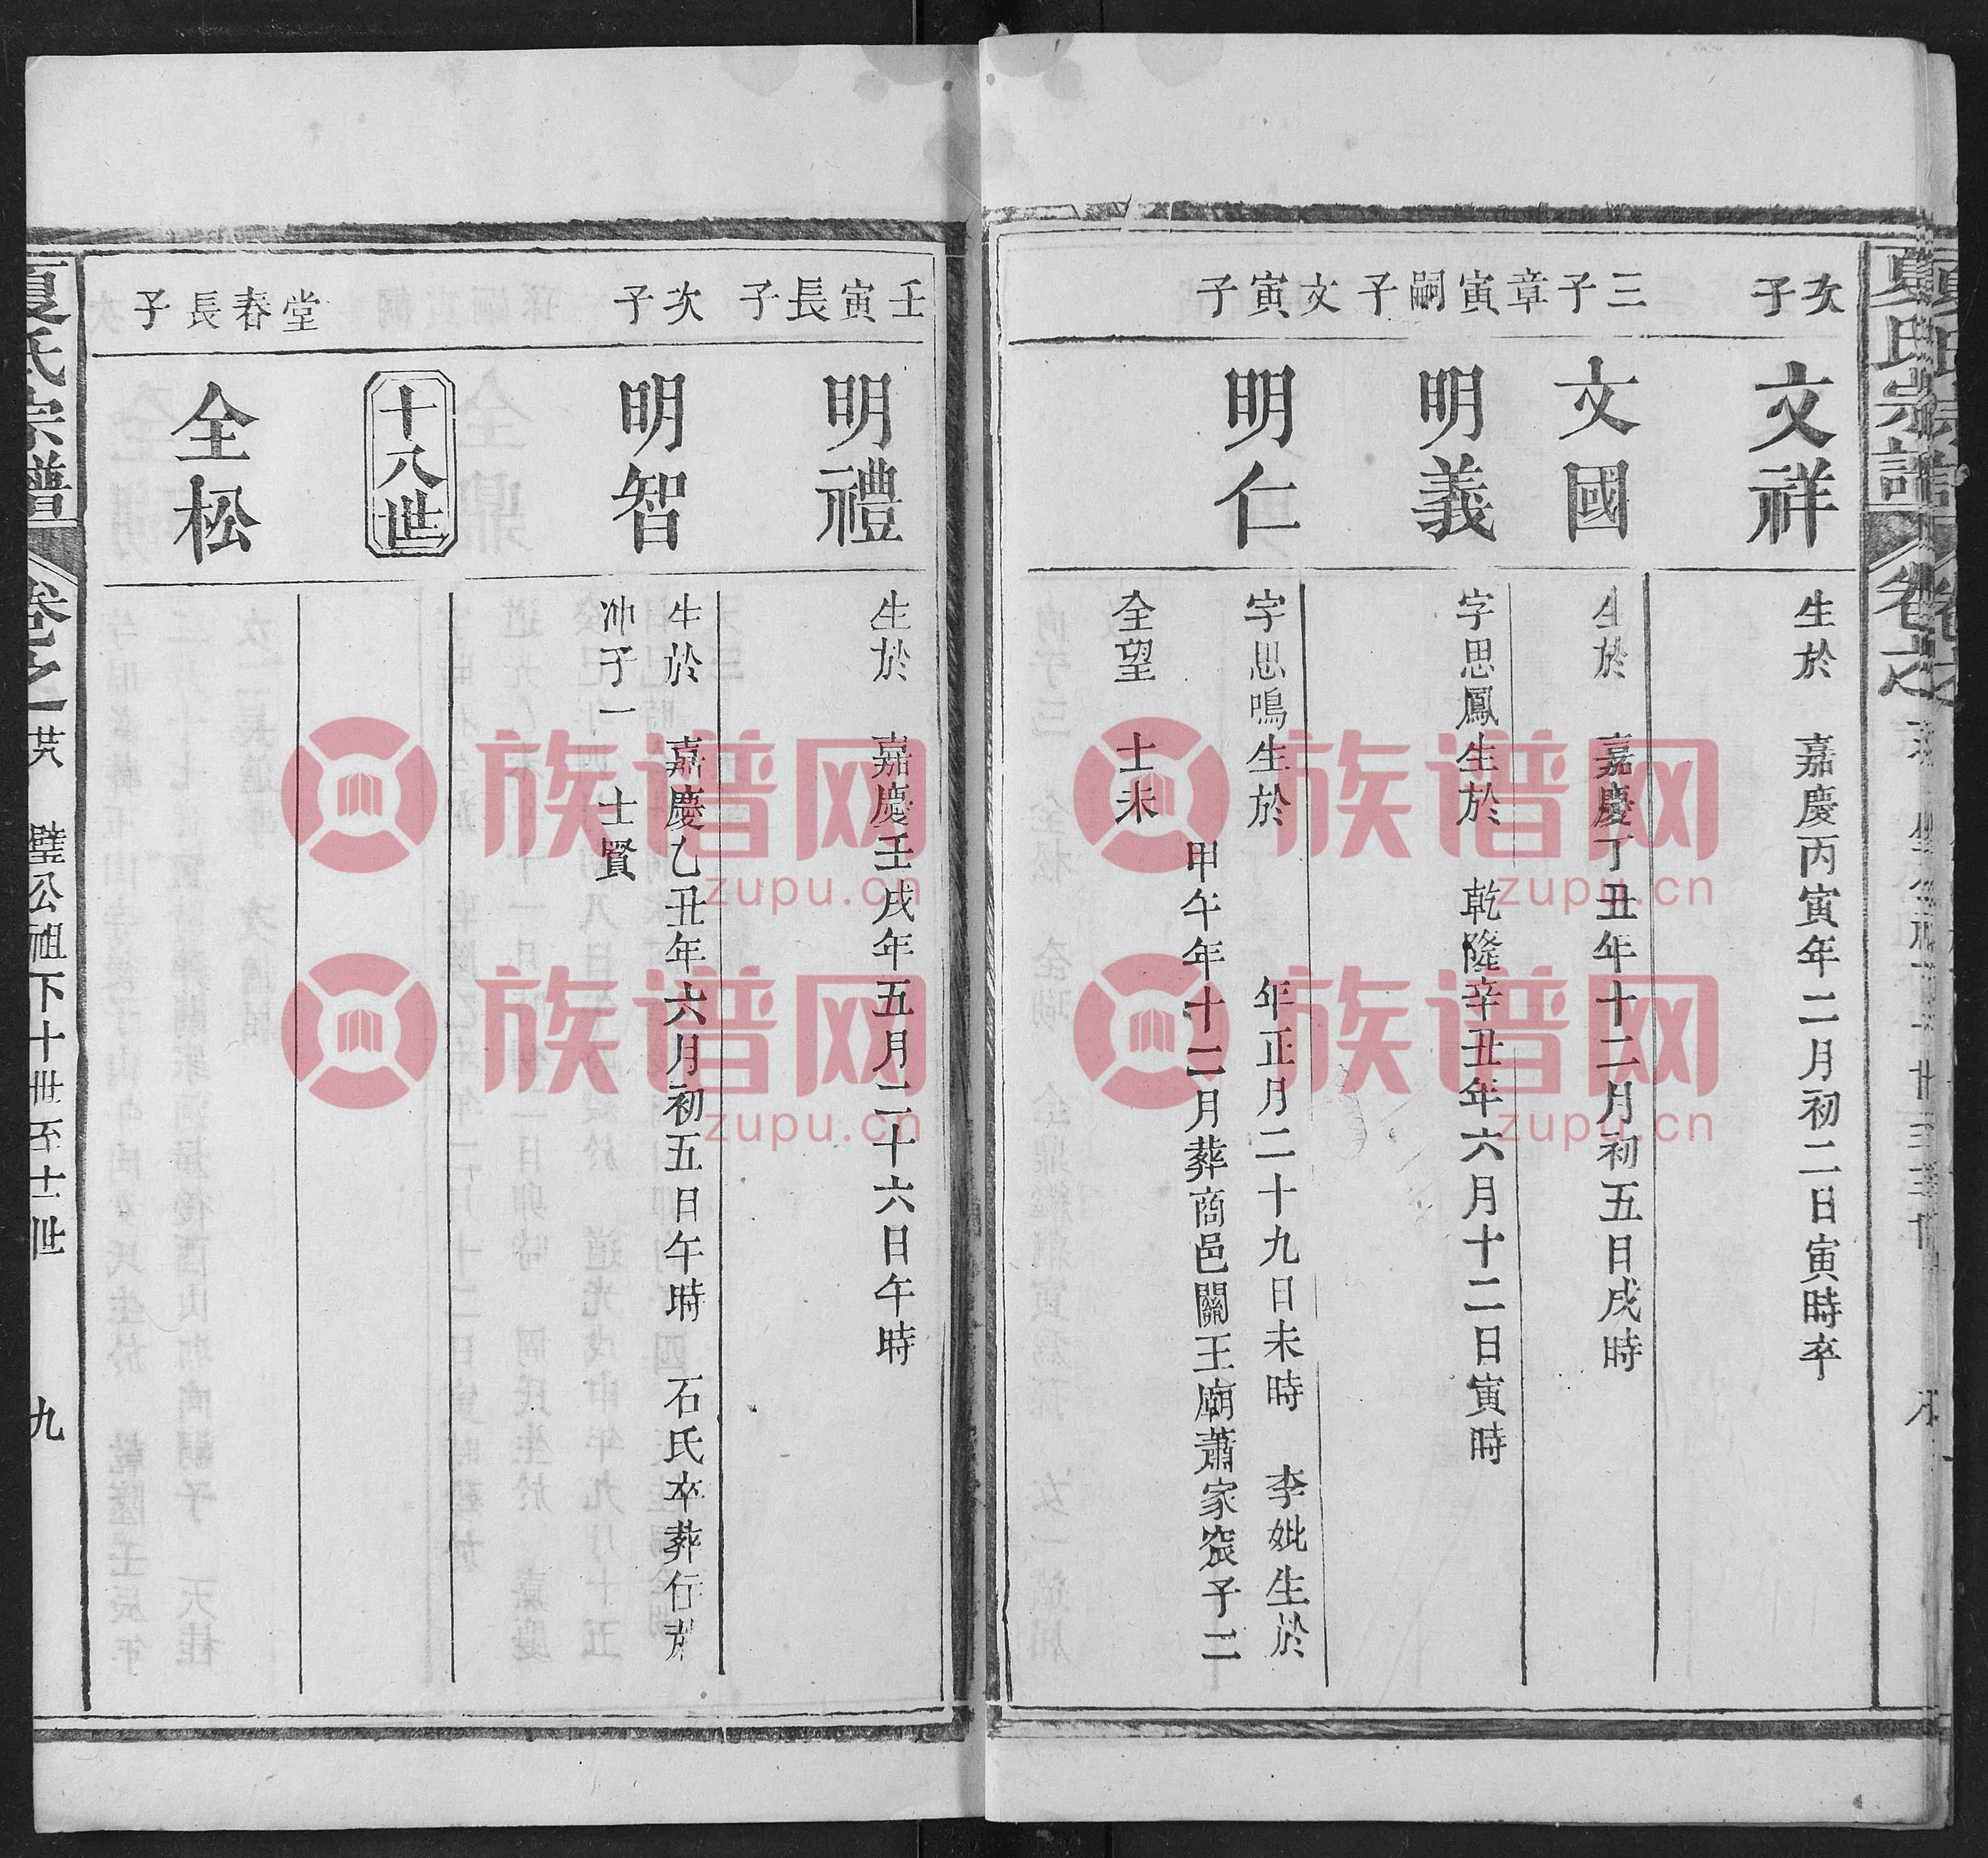 夏氏宗譜
卷之
次子
文祥
生於　嘉慶丙寅年二月初二日寅時卒
三子
文國
生於　嘉慶丁丑年十二月初五日戌時
章寅嗣子
明義
字思鳳生於　乾隆辛丑年六月十二日寅時
文寅子
明仁
字思鳴生於　年正月二十九日未時　李妣生於
甲午年十二月葬商邑關王廟蕭家窊子二
全望　士未
壬寅長子
明禮
生於　嘉慶壬戌年五月二十六日午時
次子
明智
生於　嘉慶乙丑年六月初五日午時　石氏卒葬行
子一　士賢
十八世
堂春長子
全松
夏氏宗譜
卷之　璧公祖下十世至十二世　九
族谱网
zupu.cn
族谱网
zupu.cn
族谱网
zupu.cn
族谱网
zupu.cn